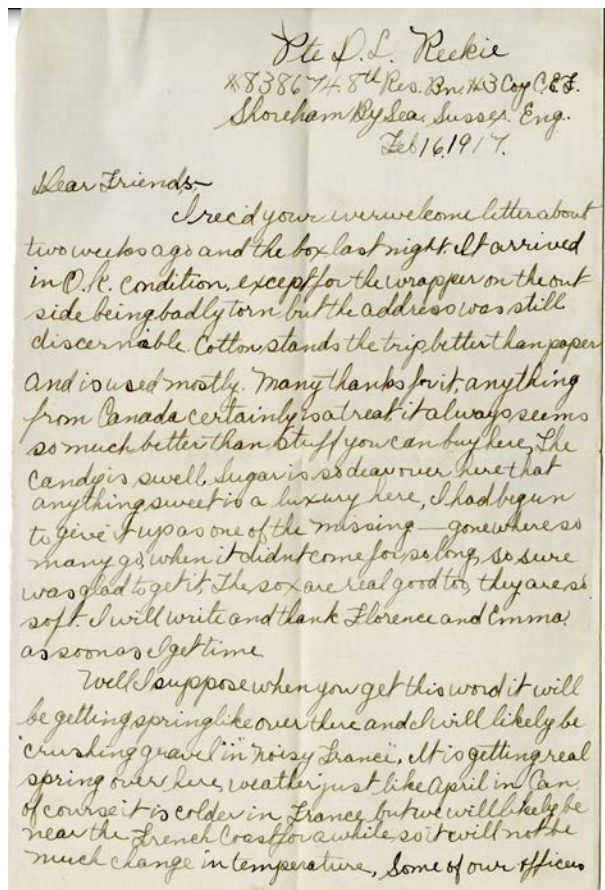 Pte D. L. Reekie
#838674. 8th Res. Bn. #3 Coy C.E.F.
Shoreham By Sea. Sussex. Eng.
Feb 16, 1917.
Dear Friends,—
I rec'd your ever welcome letter about
two weeks ago and the box last night. It arrived
in O.K. condition, except for the wrapper on the out
side being badly torn but the address was still
discernable. Cotton stands the trip better than paper
and is used mostly. Many thanks for it, anything
from Canada certainly is a treat, it always seems
so much better than stuff you can buy here, The
candy is swell. Sugar is so dear over here that
anything sweet is a luxury here, I had begun
to give it up as one of the missing — gone where so
many go, when it didnt come for so long, so sure
was glad to get it, The sox are real good too, they are so
soft. I will write and thank Florence and Emma.
as soon as I get time.
Well I suppose when you get this word it will
be getting springlike over there and I will likely be
"crushing gravel" in "Noisy France". It is getting real
spring over here, weather just like April in Can.
of course it is colder in France, but we will likely be
near the French Coast for a while, so it will not be
much change in temperature, Some of our officers